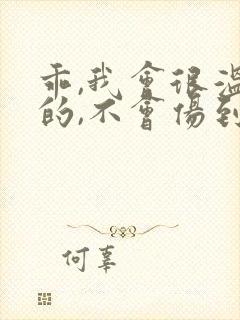 乖,我會很溫
的,不會傷到
何辜